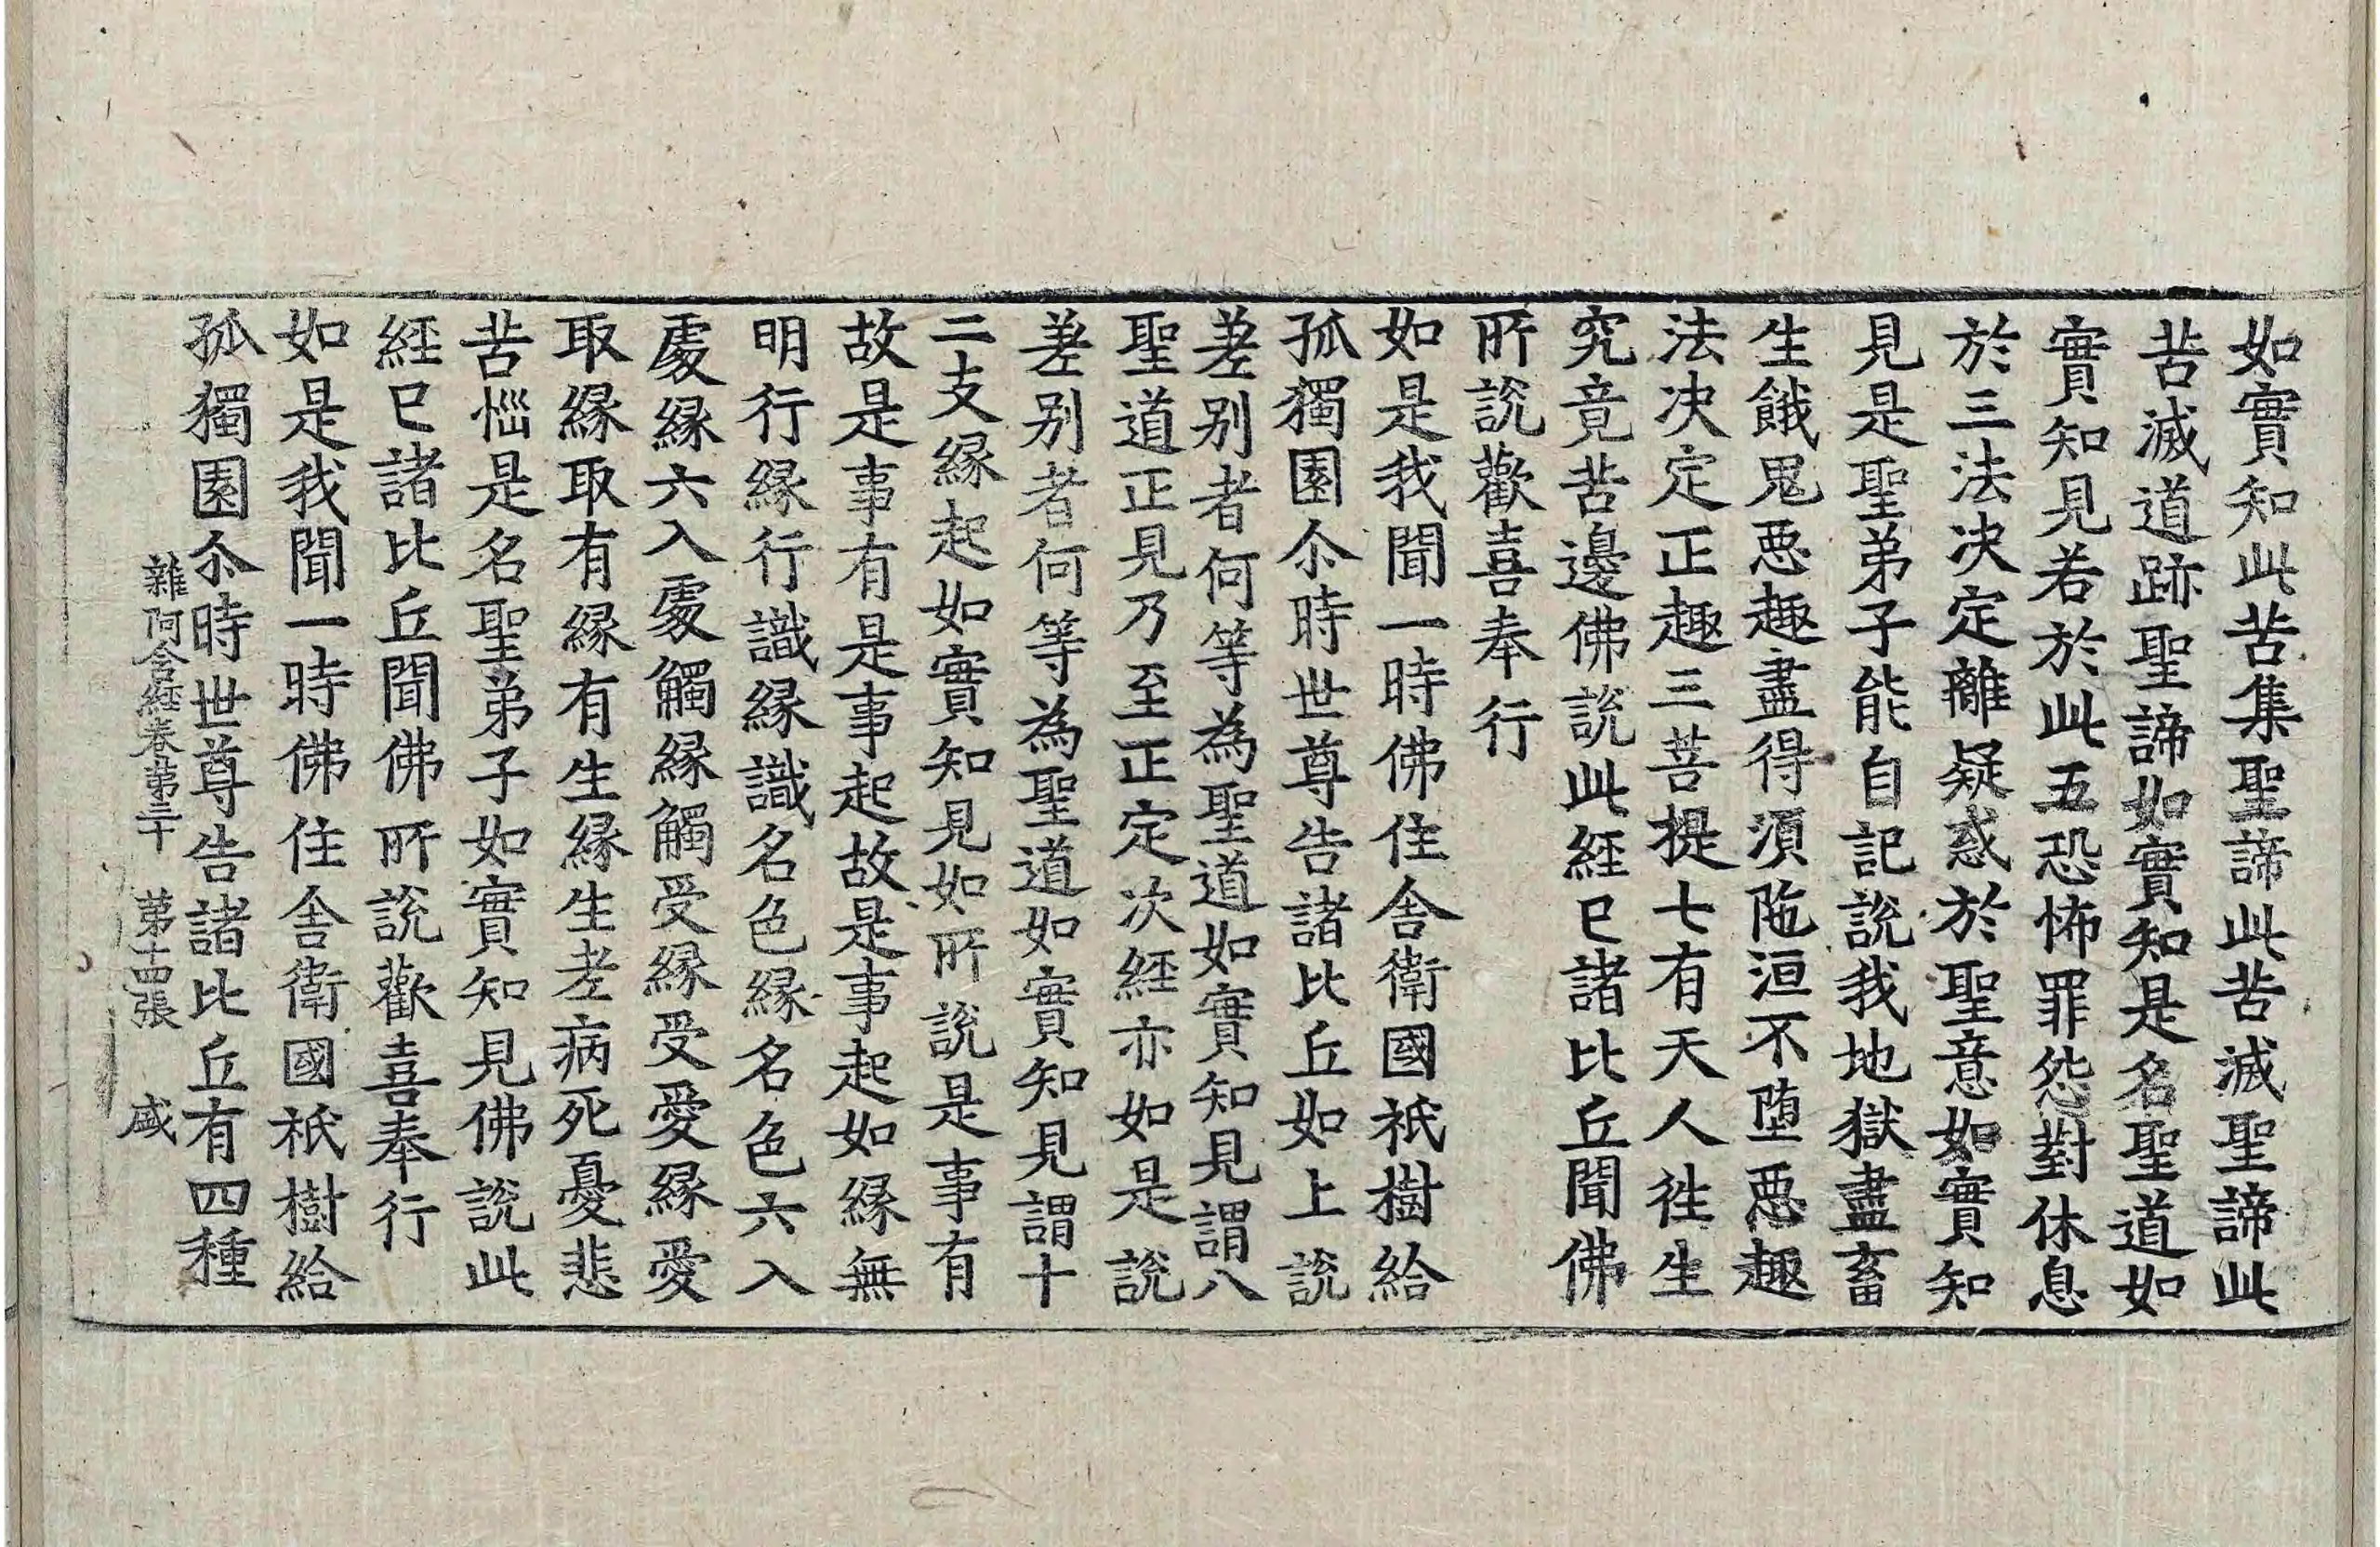 如實知此苦集聖諦此苦滅聖諦此
苦滅道跡聖諦如實知是名聖道如
實知見若於此五恐怖罪怨對休息
於三法决定離疑惑於聖意如實知
見是聖弟子能自記說我地獄盡畜
生餓鬼惡趣盡得湏陁洹不墮惡趣
法决定正趣三菩提七有天人往生
究竟苦邊佛說此經已諸比丘聞佛
所說歡喜奉行
如是我聞一時佛住舍衛國祇樹給
孤獨園尒時世尊告諸比丘如上說
差別者何等為聖道如實知見謂八
聖道正見乃至正定次經亦如是說
差別者何等為聖道如實知見謂十
二支緣起如實知見如所說是事有
故是事有是事起故是事起如緣無
明行緣行識緣識名色緣名色六入
處緣六入處觸緣觸受緣受愛緣愛
取緣取有緣有生緣生老病死憂悲
苦惱是名聖弟子如實知見佛說此
經已諸比丘聞佛所說歡喜奉行
如是我聞一時佛住舍衛國祇樹給
孤獨園尒時世尊告諸比丘有四種
雜阿含經卷第三十 第十四張 盛